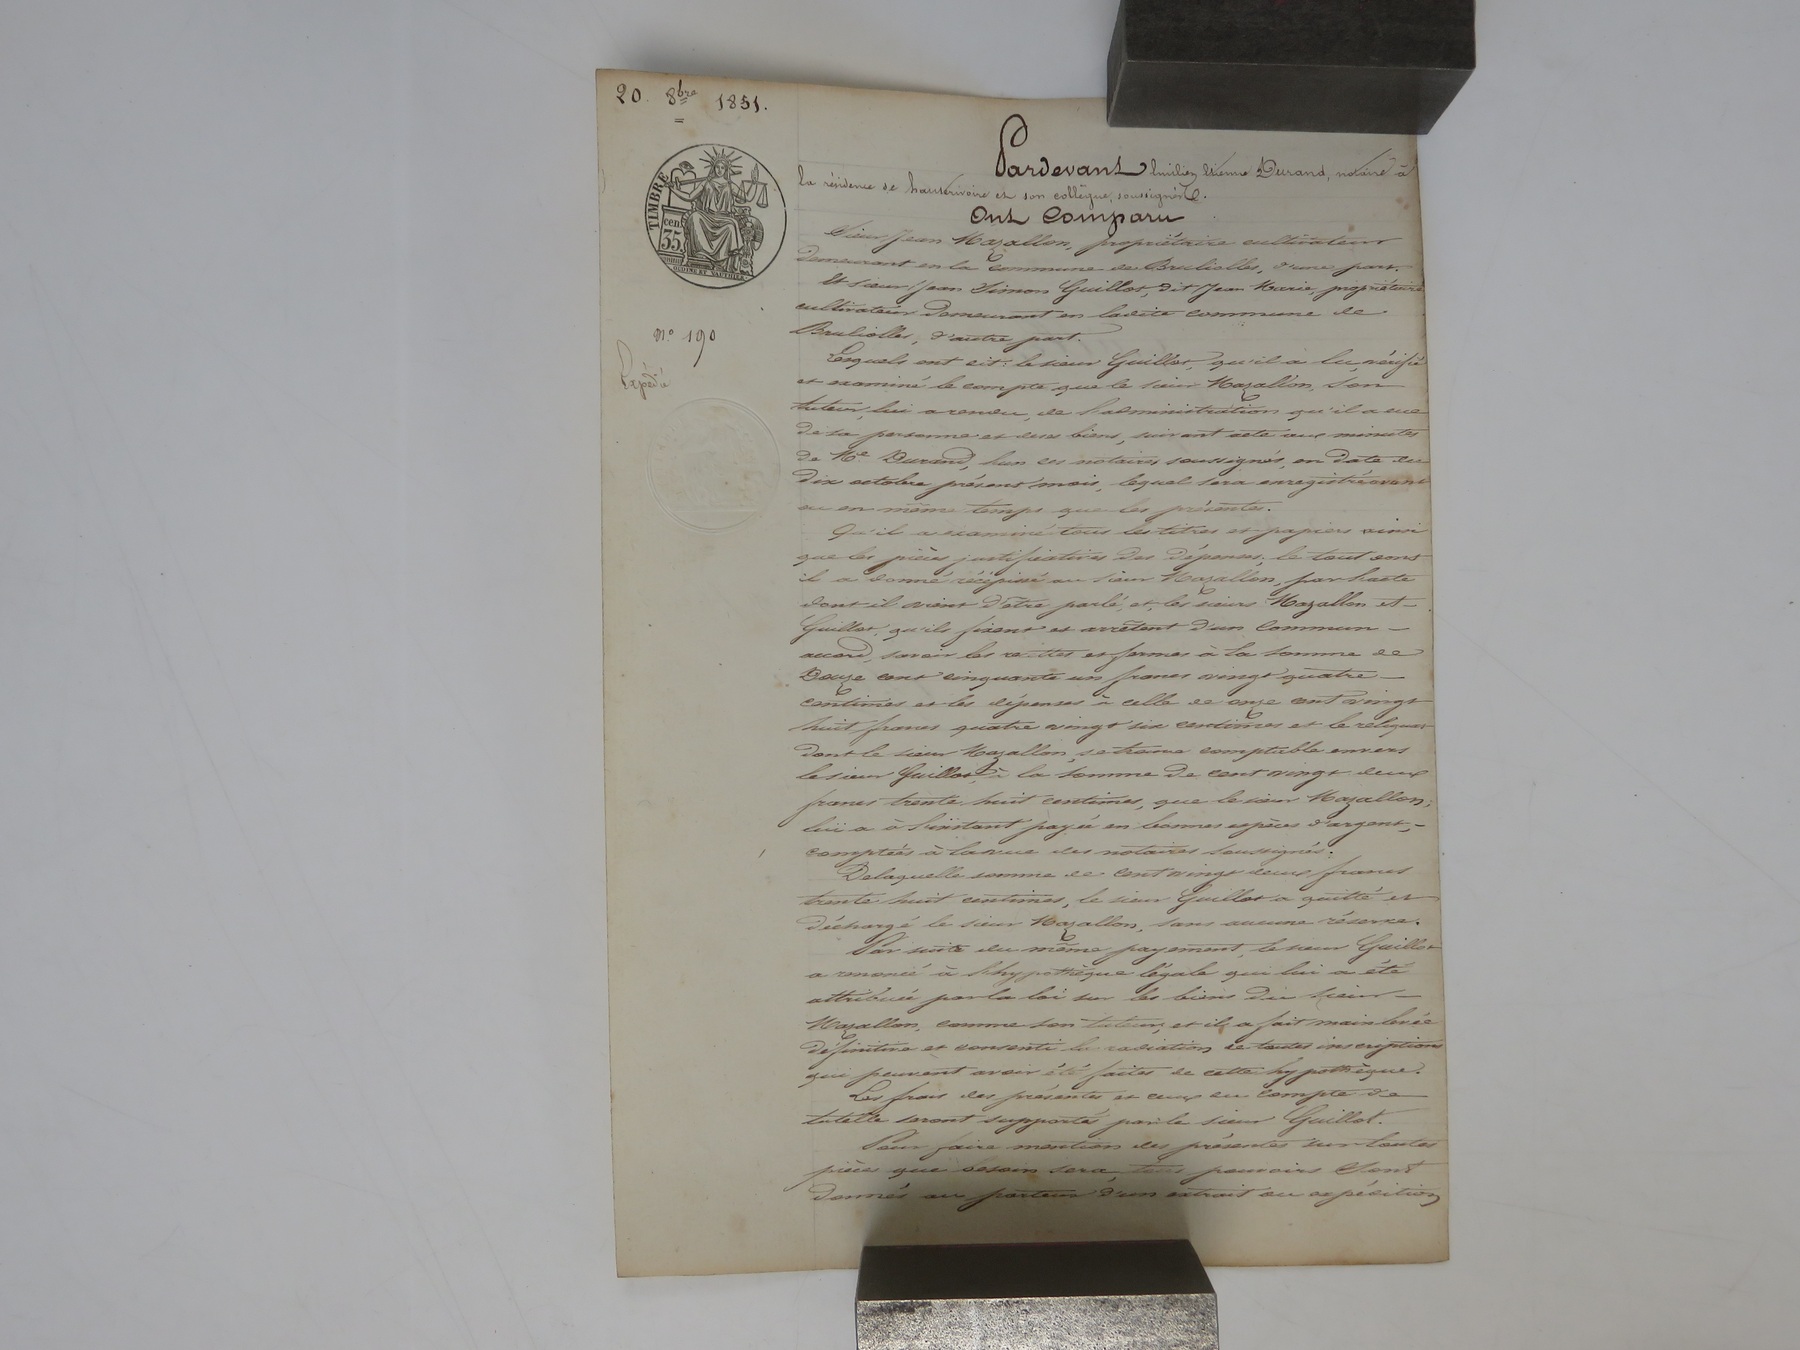 20. 8bre 1851.
TIMBRE
cen
35
OUDINÉ ET VAUTHIER
N° 190
Expédié
Pardevant Etienne Durand, notaire à
la résidence de hauterivoire et son collègue, soussignés.
Ont Comparu
Sieur Jean Mazallon, propriétaire cultivateur
demeurant en la Commune de Brulioles, d'une part.
Et sieur Jean Simon Guillot, dit Jean Marie, propriétaire
cultivateur demeurant en ladite commune de
Brulioles, d'autre part.
Lesquels ont dit: le sieur Guillot, qu'il a lu, vérifié
et examiné le compte que le sieur Mazallon, son
tuteur, lui a rendu, de l'administration qu'il a eue
de sa personne et de ses biens, suivant acte aux minutes
de Me Durand, l'un des notaires soussignés, en date du
dix octobre présent mois, lequel sera enregistré avant
ou en même temps que les présentes.
Qu'il a examiné tous les titres et papiers ainsi
que les pièces justificatives des dépenses, le tout dont
il a donné récépissé au sieur Mazallon, par l'acte
dont il vient d'être parlé, et, les sieurs Mazallon et
Guillot, qu'ils fixent et arrêtent d'un Commun
accord, savoir les recettes et fermes à la somme de
Douze cent cinquante un francs vingt quatre
centimes et les dépenses à celle de onze cent vingt
huit francs quatre vingt six centimes et le reliquat
dont le sieur Mazallon, se trouve comptable envers
le sieur Guillot, à la somme de cent vingt deux
francs trente huit centimes, que le sieur Mazallon,
lui a à l'instant payée en bonnes espèces d'argent,
comptées à la vue des notaires soussignés.
De laquelle somme de cent vingt deux francs
trente huit centimes, le sieur Guillot a quitté et
déchargé le sieur Mazallon, sans aucune réserve.
Par suite du même payement, le sieur Guillot
a renoncé à l'hypothèque légale qui lui a été
attribuée par la loi sur les biens du sieur
Mazallon, comme son tuteur, et il a fait main levée
définitive et consenti la radiation de toutes inscriptions
qui peuvent avoir été faites de cette hypothèque.
Les frais des présentes et ceux du compte de
tutelle seront supportés par le sieur Guillot.
Pour faire mention des présentes sur toutes
pièces que besoin sera tous pouvoirs sont
donnés au porteur d'un extrait ou expédition